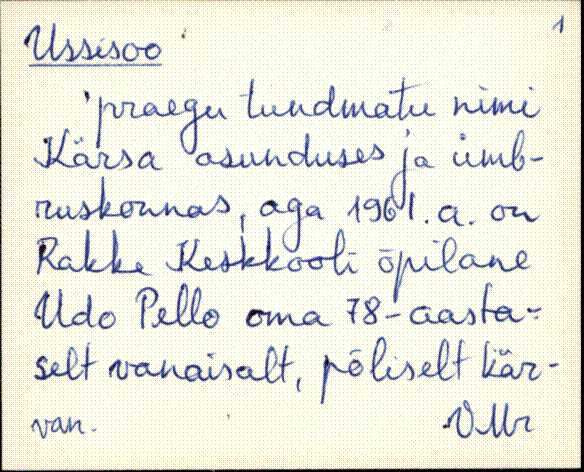 1
Ussisoo
praegu tundmatu nimi
Kärsa asunduses ja ümb-
ruskonnas, aga 1961. a. on
Rakke Keskkooli õpilane
Udo Pello oma 78-aasta-
selt vanaisalt, põliselt kär-
van.